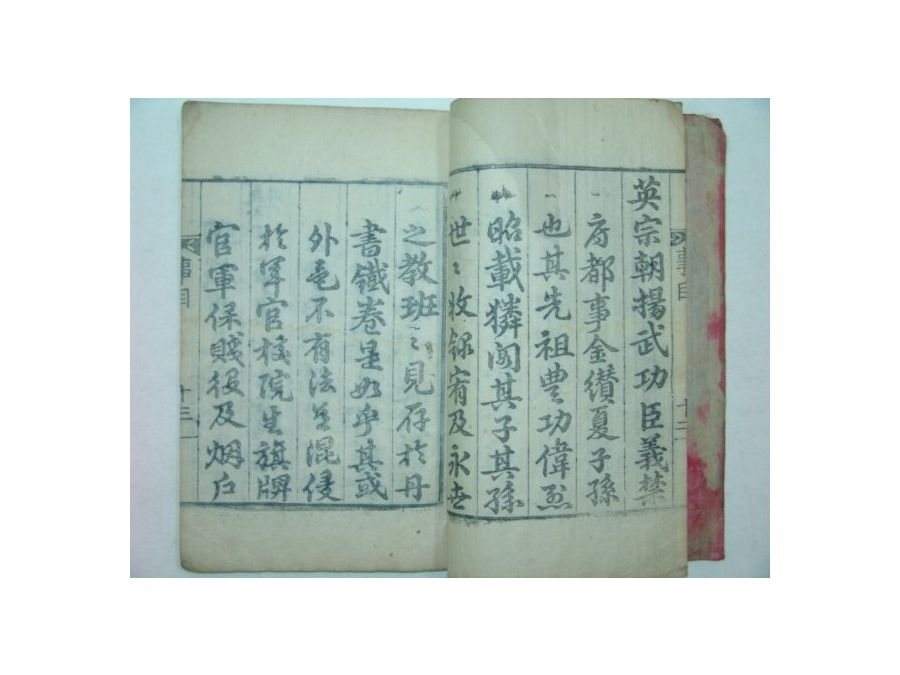 英宗朝揚武功臣義禁
府都事金纘夏子孫
也其先祖豊功偉烈
昭載獜閣其子其孫
世〻收錄宥及永世
之教班〻見存於丹
書鐵卷是如乎其或
外邑不有法意混侵
於軍官校院生旗牌
官軍保賤役及烟戶
事目
十三
事目
十二